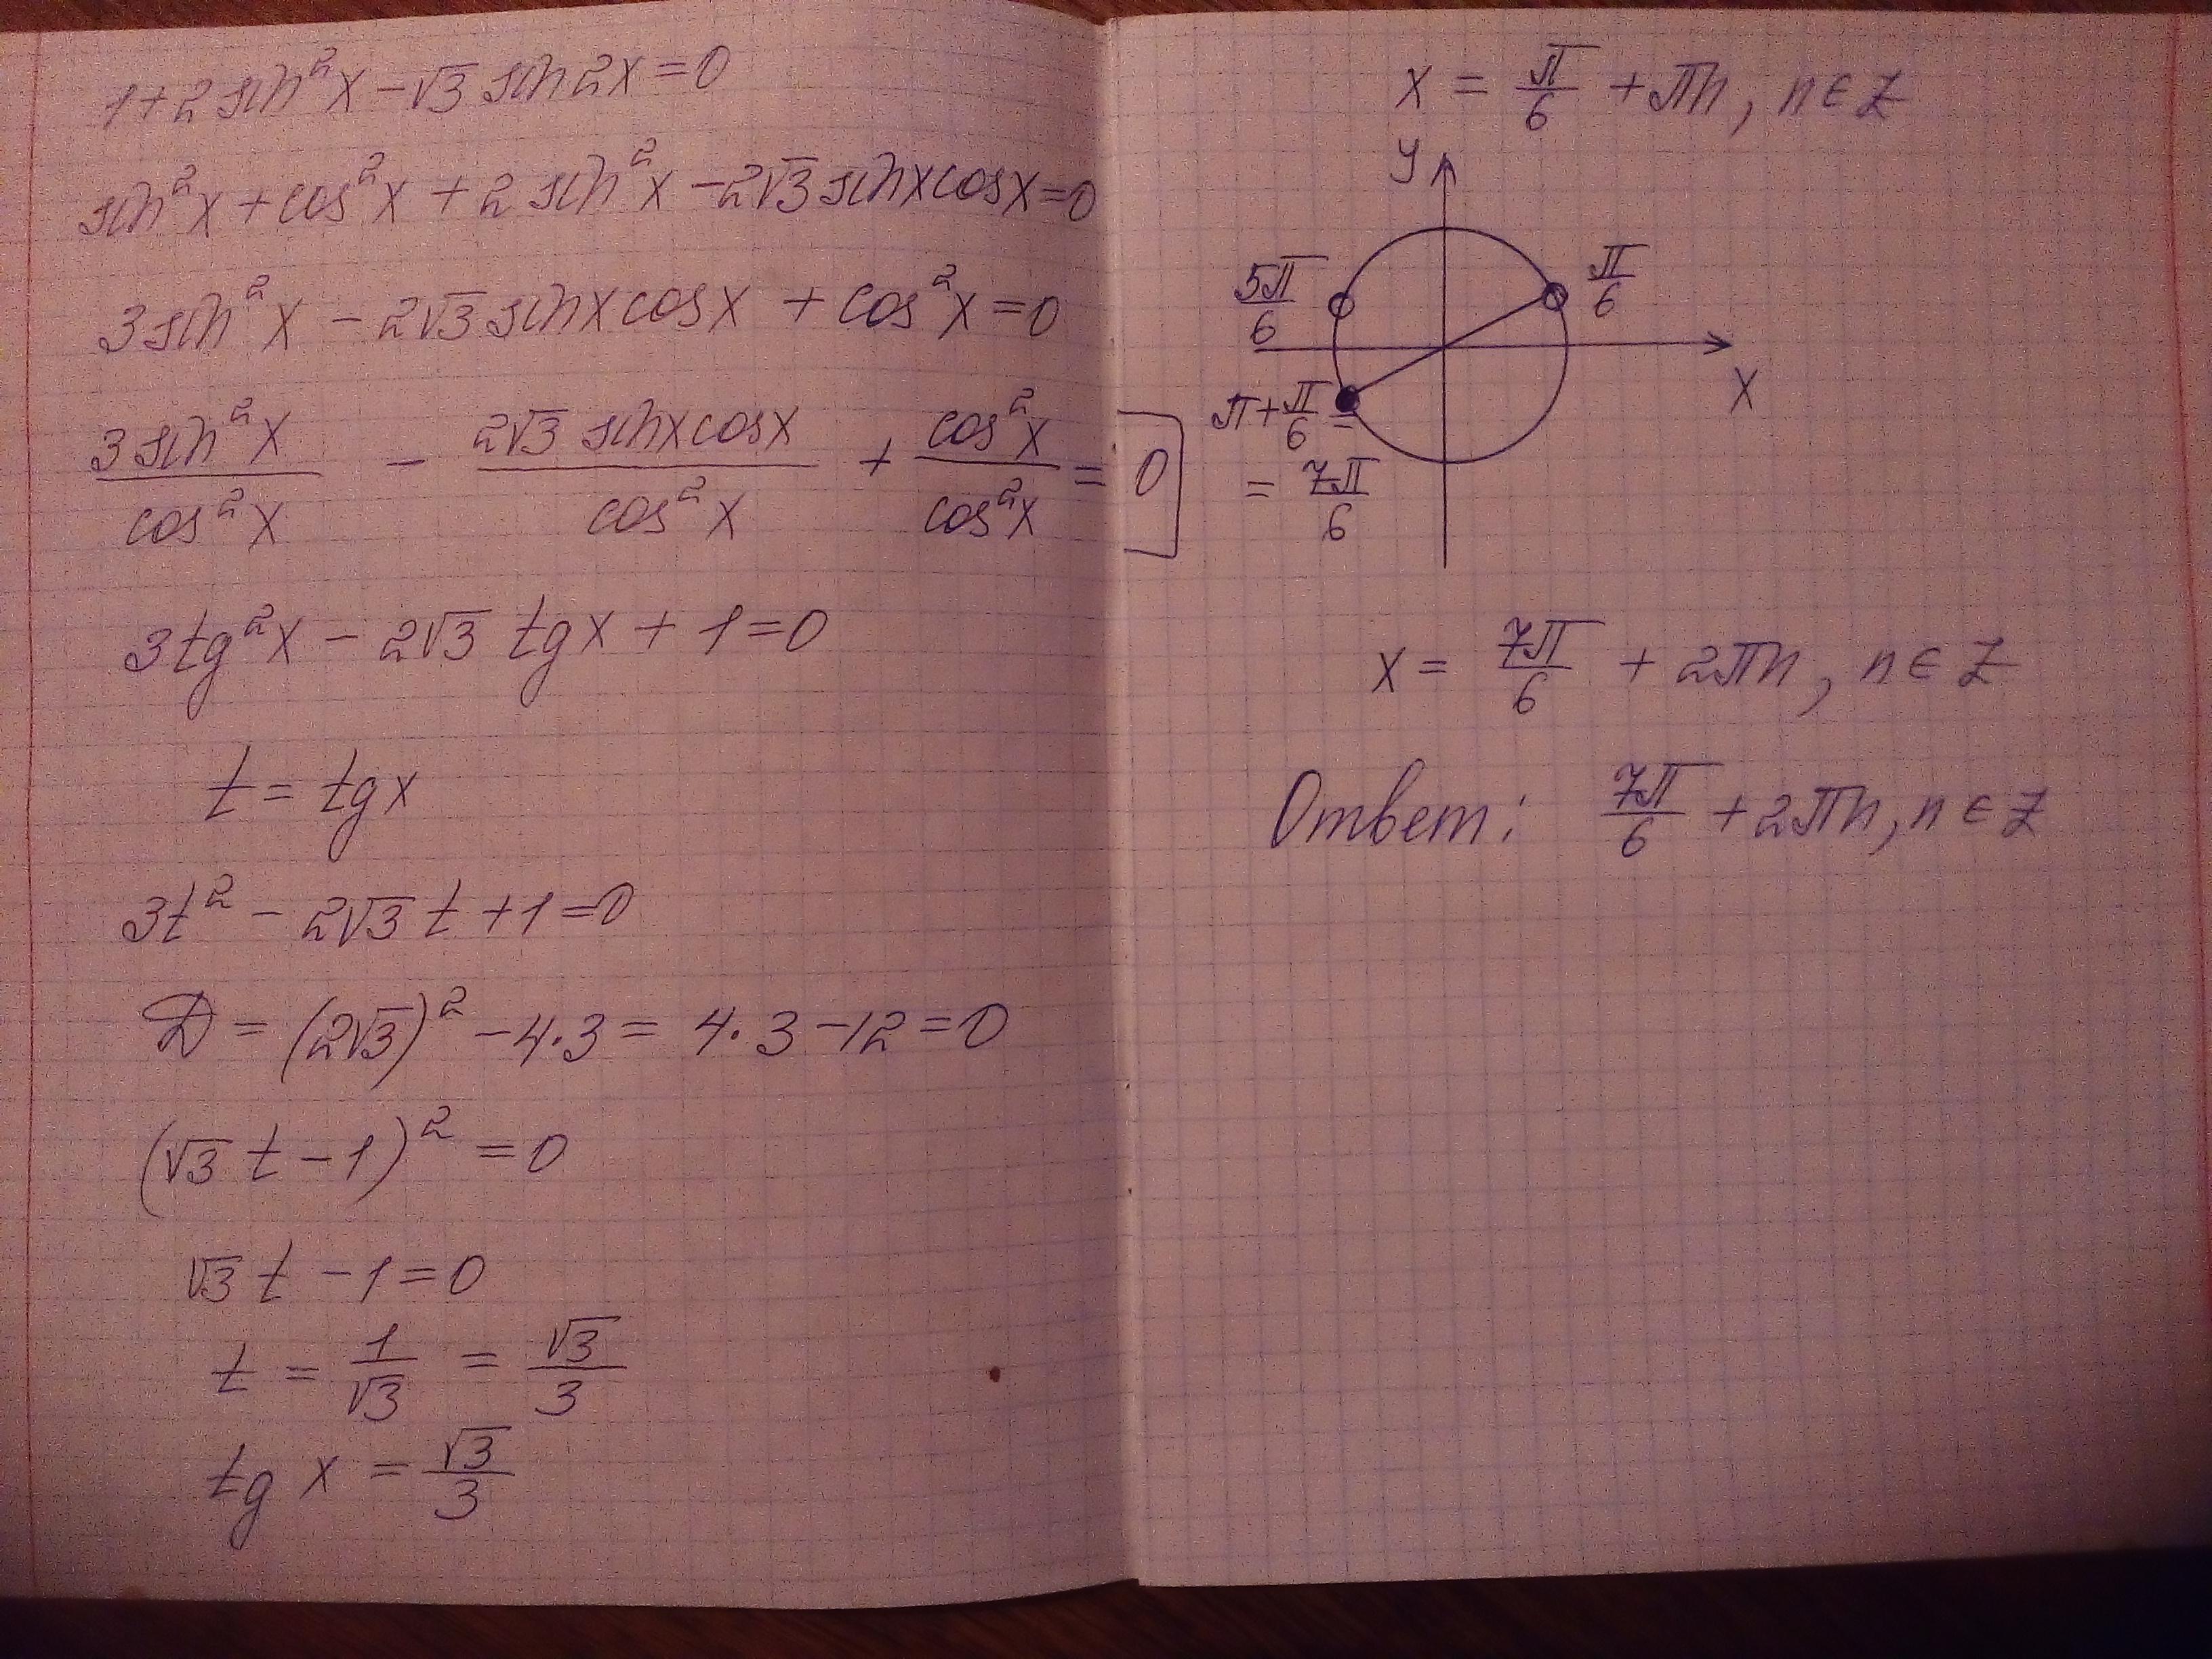 1+2sin²x-√3 sin2x=0
sin²x+cos²x+2sin²x-2√3sinxcosx=0
3sin²x-2√3sinxcosx+cos²x=0
3sin²x/cos²x - 2√3sinxcosx/cos²x + cos²x/cos²x = 0
3tg²x-2√3 tgx+1=0
t=tgx
3t²-2√3t+1=0
D=(2√3)²-4·3=4·3-12=0
(√3t-1)²=0
√3t-1=0
t=1/√3=√3/3
tg x=√3/3
x=π/6+πn, n∈Z
y
5π/6
π/6
x
π+π/6=
=7π/6
x=7π/6+2πn, n∈Z
Ответ: 7π/6+2πn, n∈Z